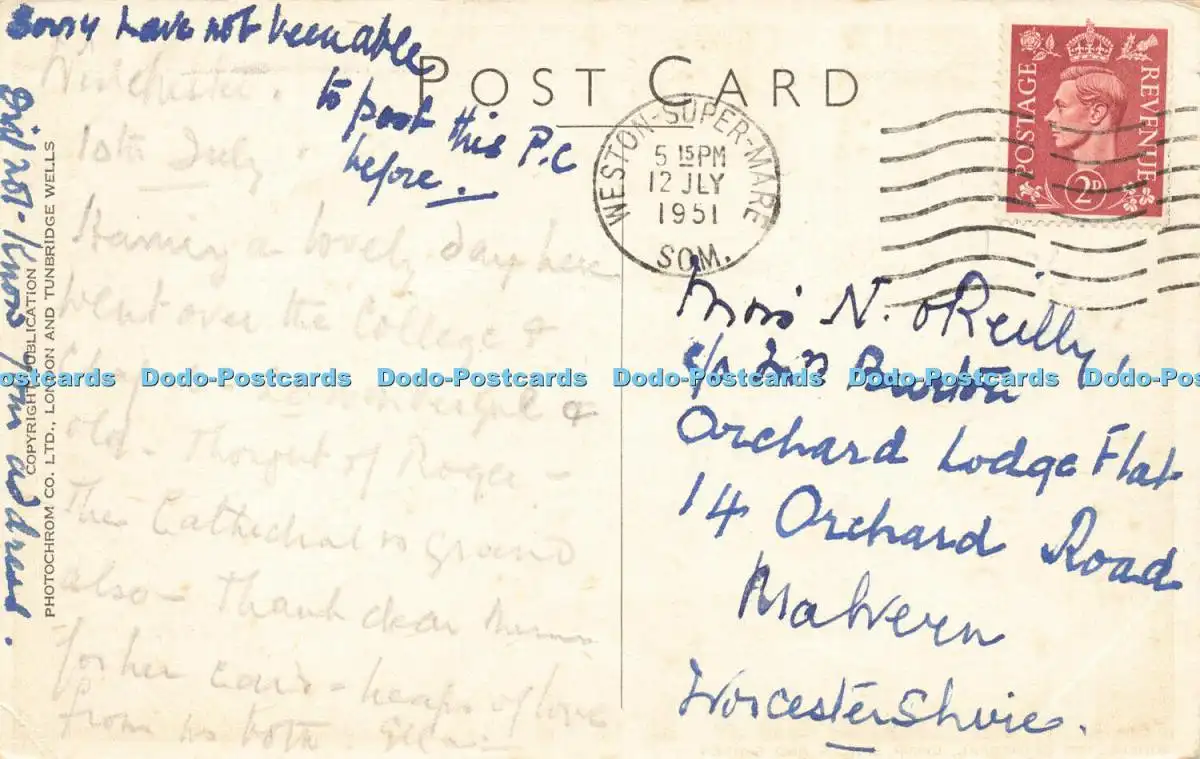 Sorry have not been able
to post this P.C
before.
did not know your address.
Winchester.
10th July.
Having a lovely day here
went over the College &
wonderful &
old - Thought of Roger -
The Cathedral is grand
also - Thank dear
for her - heaps of love
from us both.
POST CARD
WESTON-SUPER-MARE
5 15 PM
12 JLY
1951
SOM.
POSTAGE
REVENUE
2D
Miss N. O'Reilly,
c/o Burton
Orchard Lodge Flat
14 Orchard Road
Malvern
Worcestershire.
COPYRIGHT PUBLICATION
PHOTOCHROM CO. LTD., LONDON AND TUNBRIDGE WELLS
Dodo-Postcards Dodo-Postcards Dodo-Postcards Dodo-Postcards Dodo-Postcards